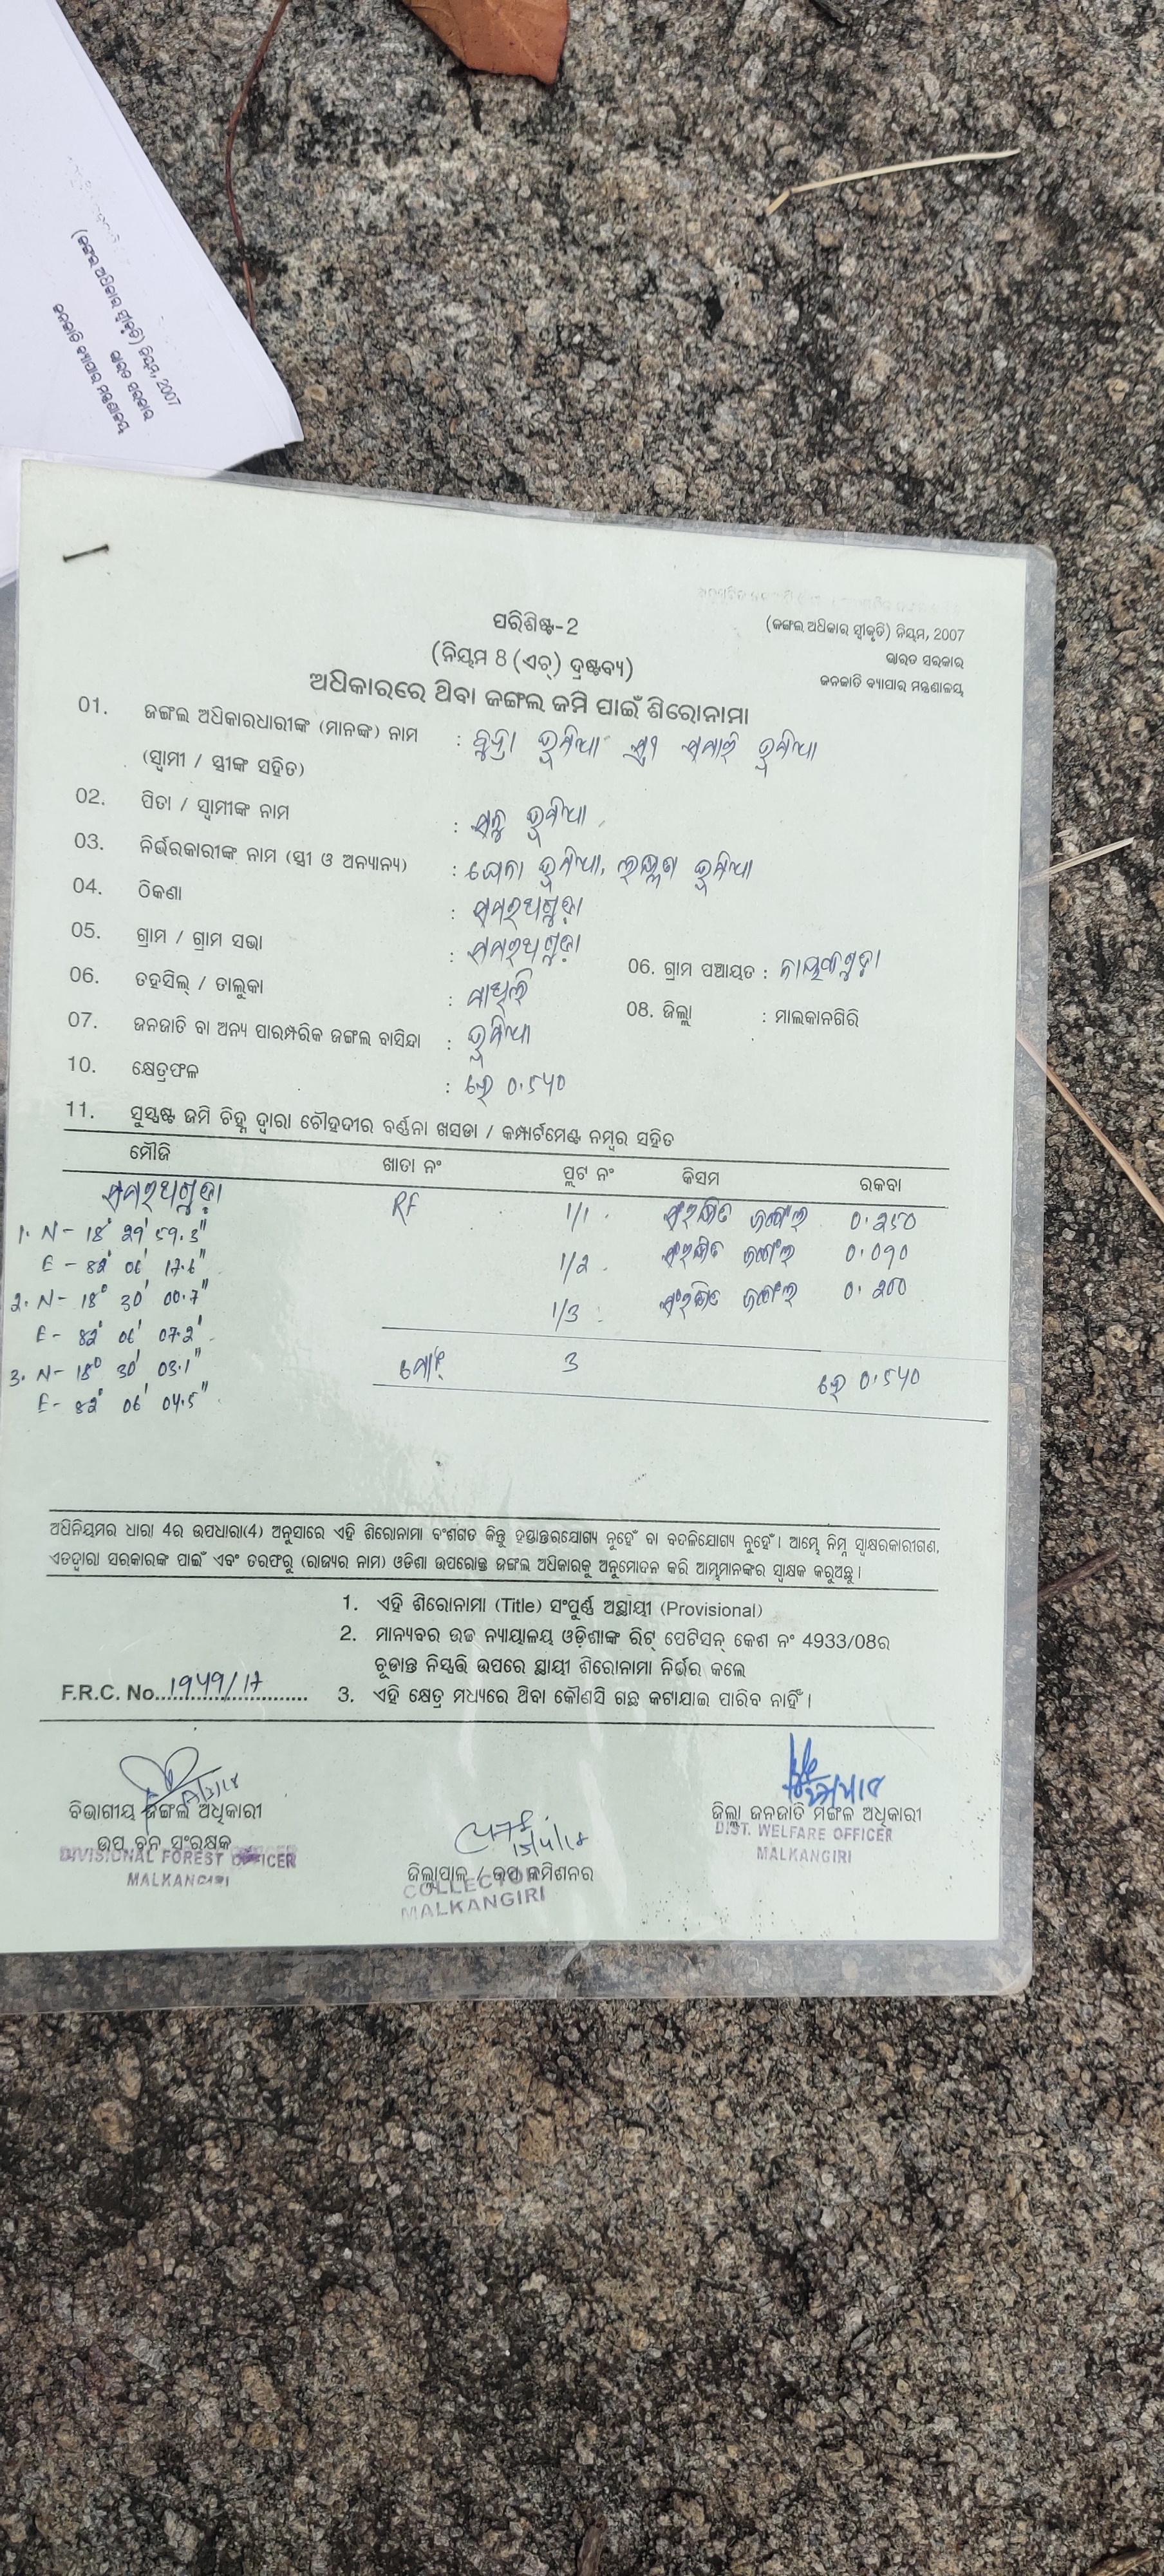 (ଜଙ୍ଗଲ ଅଧିକାର ସ୍ୱୀକୃତି) ନିୟମ, 2007
ଭାରତ ସରକାର
ଜନଜାତି ବ୍ୟାପାର ମନ୍ତ୍ରଣାଳୟ
ପରିଶିଷ୍ଟ-2
(ଜଙ୍ଗଲ ଅଧିକାର ସ୍ୱୀକୃତି) ନିୟମ, 2007
(ନିୟମ 8 (ଏଚ୍) ଦ୍ରଷ୍ଟବ୍ୟ)
ଭାରତ ସରକାର
ଜନଜାତି ବ୍ୟାପାର ମନ୍ତ୍ରଣାଳୟ
ଅଧିକାରରେ ଥିବା ଜଙ୍ଗଲ ଜମି ପାଇଁ ଶିରୋନାମା
01. ଜଙ୍ଗଲ ଅଧିକାରଧାରୀଙ୍କ (ମାନଙ୍କ) ନାମ : ଭୂମିଆ ଭୂମିଆ
(ସ୍ୱାମୀ / ସ୍ତ୍ରୀଙ୍କ ସହିତ)
02. ପିତା / ସ୍ୱାମୀଙ୍କ ନାମ : ଭୂମିଆ
03. ନିର୍ଭରକାରୀଙ୍କ ନାମ (ସ୍ତ୍ରୀ ଓ ଅନ୍ୟାନ୍ୟ) : ଭୂମିଆ, ଭୂମିଆ
04. ଠିକଣା :
05. ଗ୍ରାମ / ଗ୍ରାମ ସଭା : 06. ଗ୍ରାମ ପଞ୍ଚାୟତ :
06. ତହସିଲ୍ / ତାଲୁକା : ମାଥିଲି 08. ଜିଲ୍ଲା : ମାଲକାନଗିରି
07. ଜନଜାତି ବା ଅନ୍ୟ ପାରମ୍ପରିକ ଜଙ୍ଗଲ ବାସିନ୍ଦା : ଭୂମିଆ
10. କ୍ଷେତ୍ରଫଳ : ହେ 0.540
11. ସୁସ୍ପଷ୍ଟ ଜମି ଚିହ୍ନ ଦ୍ୱାରା ଚୌହଦୀର ବର୍ଣ୍ଣନା ଖସଡା / କମ୍ପାର୍ଟମେଣ୍ଟ ନମ୍ବର ସହିତ
ମୌଜି ଖାତା ନଂ ପ୍ଲଟ ନଂ କିସମ ରକବା
RF 1/1 ସଂରକ୍ଷିତ ଜଙ୍ଗଲ 0.250
1. N - 18° 29' 59.3"
E - 82° 06' 17.6" 1/2 ସଂରକ୍ଷିତ ଜଙ୍ଗଲ 0.090
2. N - 18° 30' 00.7" 1/3 ସଂରକ୍ଷିତ ଜଙ୍ଗଲ 0.200
E - 82° 06' 07.2"
3. N - 18° 30' 03.1" ମୋଟ 3 ହେ 0.540
E - 82° 06' 04.5"
ଅଧିନିୟମର ଧାରା 4ର ଉପଧାରା(4) ଅନୁସାରେ ଏହି ଶିରୋନାମା ବଂଶଗତ କିନ୍ତୁ ହସ୍ତାନ୍ତରଯୋଗ୍ୟ ନୁହେଁ ବା ବଦଳିଯୋଗ୍ୟ ନୁହେଁ। ଆମ୍ଭେ ନିମ୍ନ ସ୍ୱାକ୍ଷରକାରୀଗଣ,
ଏତଦ୍ୱାରା ସରକାରଙ୍କ ପାଇଁ ଏବଂ ତରଫରୁ (ରାଜ୍ୟର ନାମ) ଓଡିଶା ଉପରୋକ୍ତ ଜଙ୍ଗଲ ଅଧିକାରକୁ ଅନୁମୋଦନ କରି ଆମ୍ଭମାନଙ୍କର ସ୍ୱାକ୍ଷକ କରୁଅଛୁ।
1. ଏହି ଶିରୋନାମା (Title) ସଂପୁର୍ଣ୍ଣ ଅସ୍ଥାୟୀ (Provisional)
2. ମାନ୍ୟବର ଉଚ୍ଚ ନ୍ୟାୟାଳୟ ଓଡ଼ିଶାଙ୍କ ରିଟ୍ ପେଟିସନ୍ କେଶ ନଂ 4933/08ର
ଚୂଡାନ୍ତ ନିସ୍ପତ୍ତି ଉପରେ ସ୍ଥାୟୀ ଶିରୋନାମା ନିର୍ଭର କଲେ
F.R.C. No. 1949/17
3. ଏହି କ୍ଷେତ୍ର ମଧ୍ୟରେ ଥିବା କୌଣସି ଗଛ କଟାଯାଇ ପାରିବ ନାହିଁ।
ବିଭାଗୀୟ ଜଙ୍ଗଲ ଅଧିକାରୀ
ଉପ ବନ ସଂରକ୍ଷକ
DIVISIONAL FOREST OFFICER
MALKANGIRI
ଜିଲ୍ଲାପାଳ / ଉପ କମିଶନର
COLLECTOR
MALKANGIRI
ଜିଲ୍ଲା ଜନଜାତି ମଙ୍ଗଳ ଅଧିକାରୀ
DIST. WELFARE OFFICER
MALKANGIRI